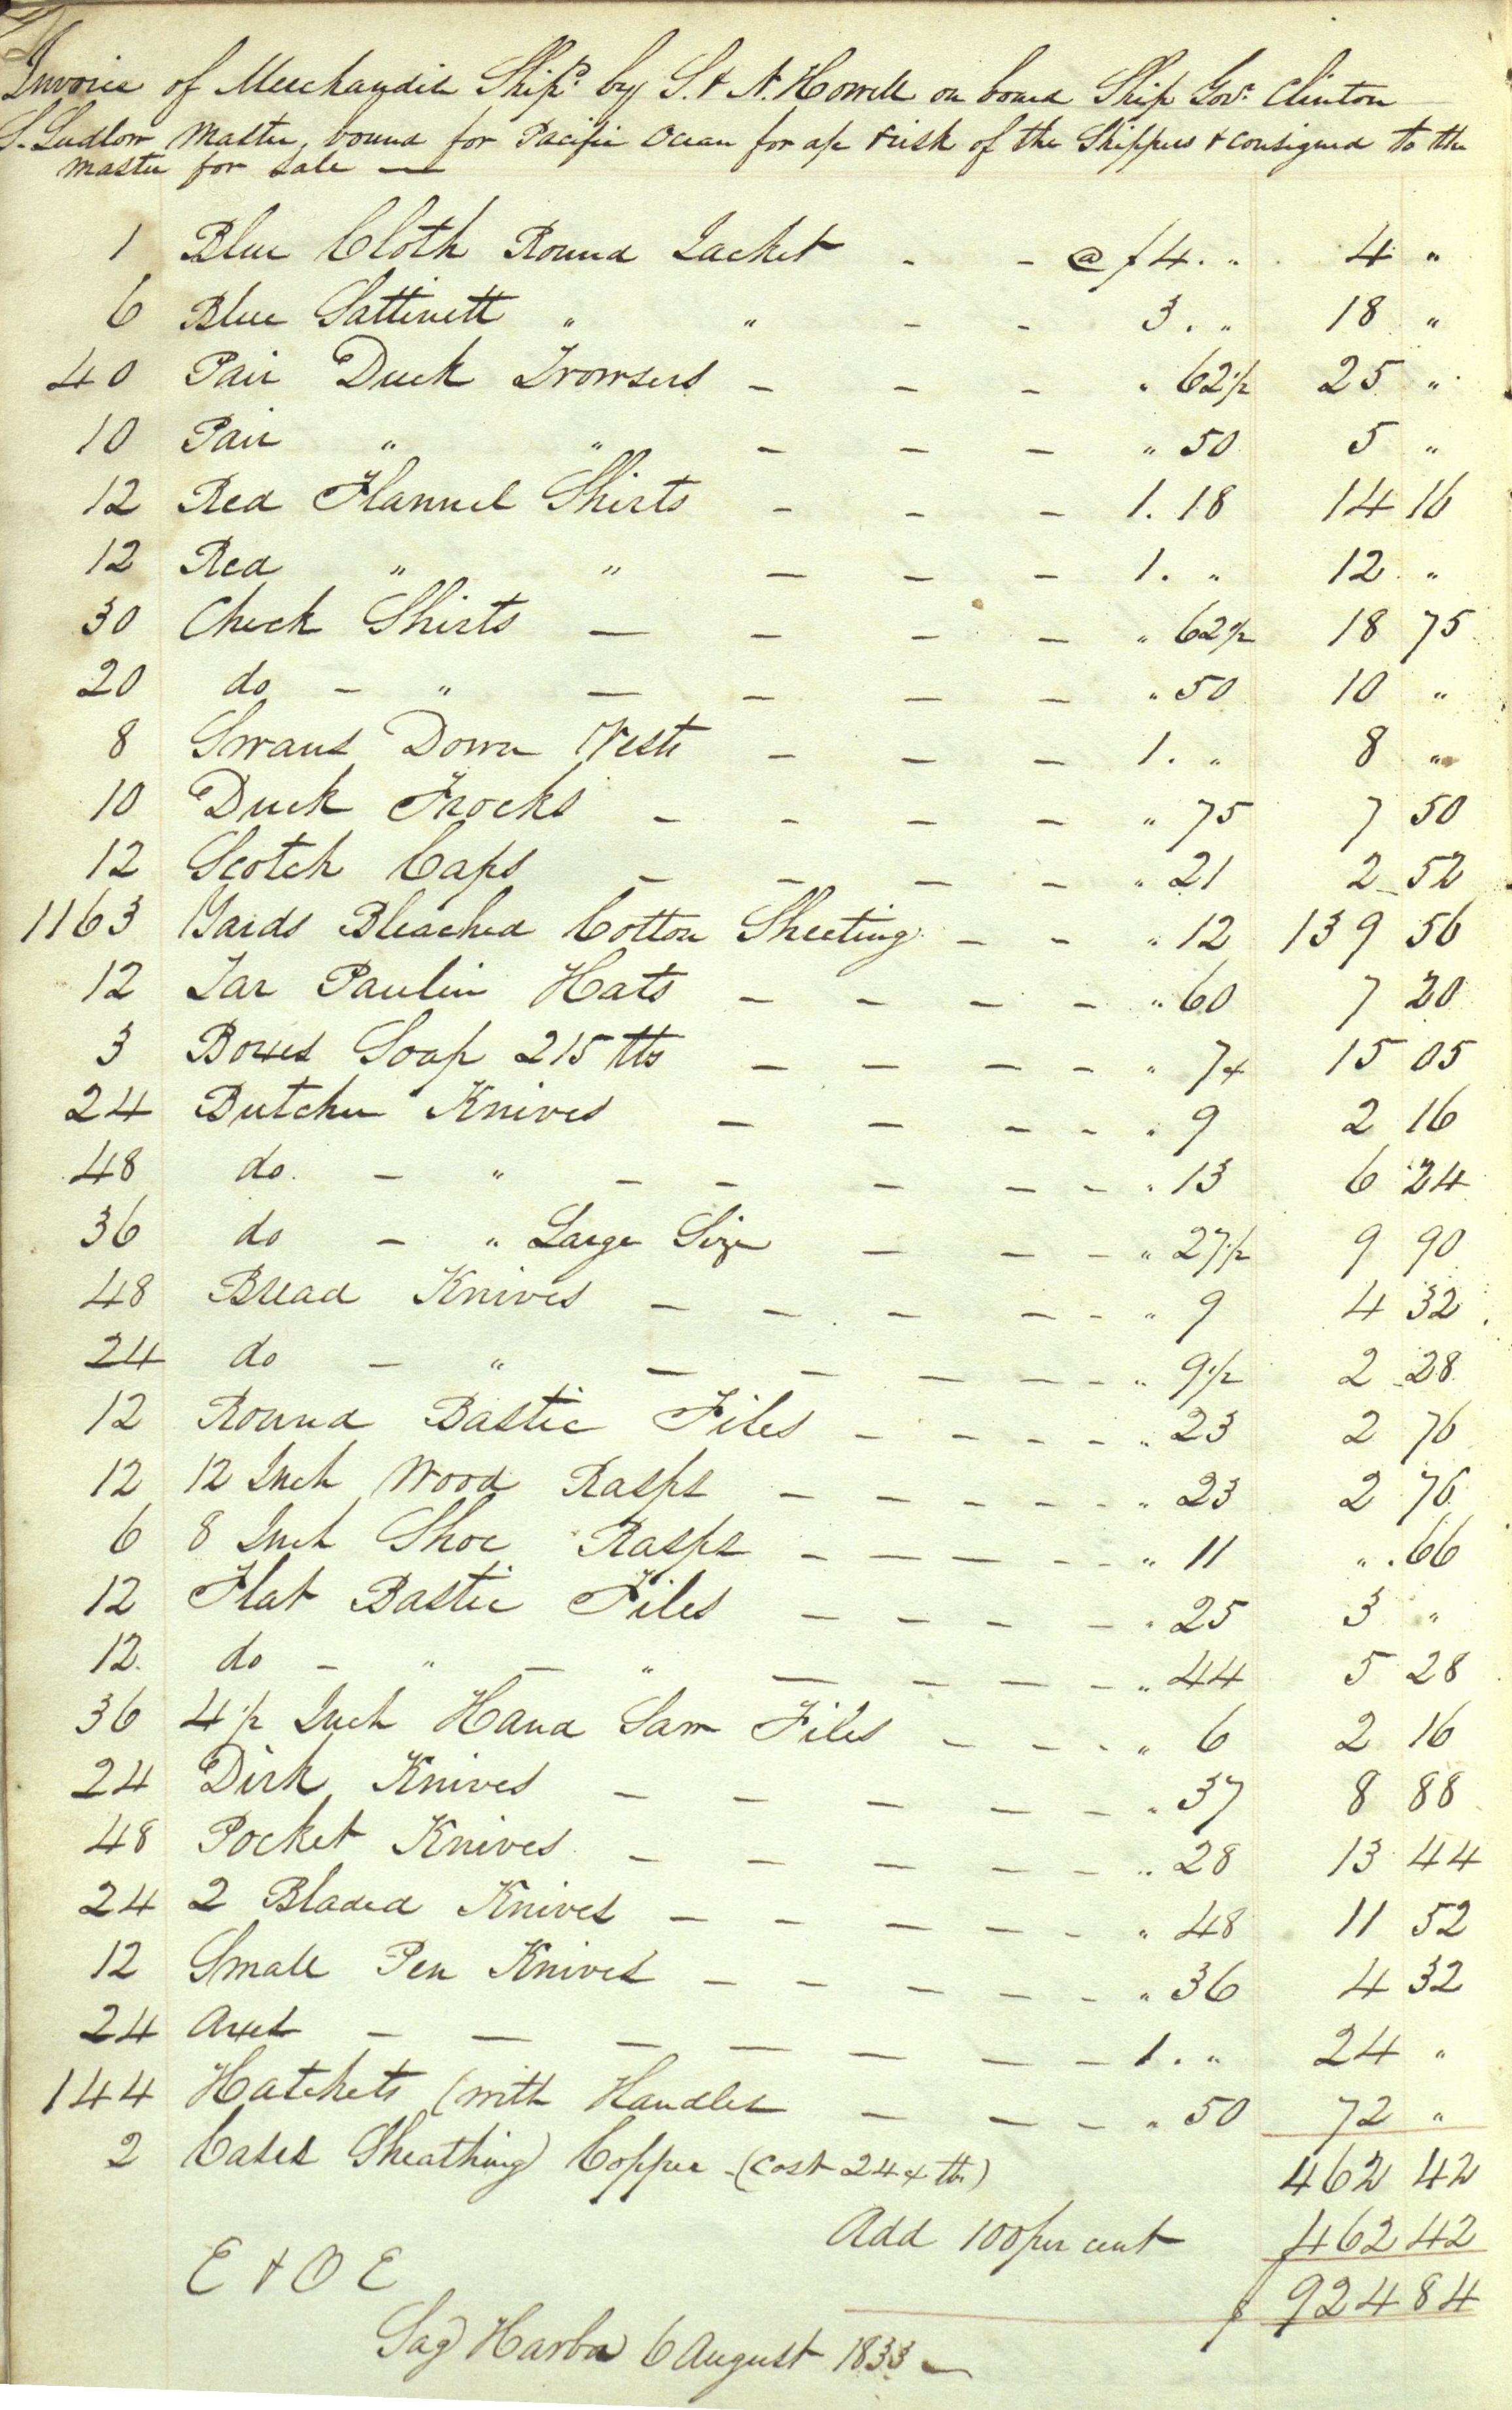 Invoice of Merchandise Ship^d by S. & N. Howell on board Ship Gov^r Clinton
S. Ludlow Master, bound for Pacific Ocean for a/c & risk of the Shippers & consigned to the
master for sale —
1 Blue Cloth Round Jacket - - @ $4. " 4 "
6 Blue Sattinett " " - - 3. " 18 "
40 Pair Duck Trowsers - - - " 62 1/2 25 "
10 Pair " " - - - " 50 5 "
12 Red Flannel Shirts - - - 1. 18 14 16
12 Red " " - - - 1. " 12 "
30 Check Shirts - - - - " 62 1/2 18 75
20 do - " - - - - " 50 10 "
8 Swans Down Vests - - - 1. " 8 "
10 Duck Frocks - - - - " 75 7 50
12 Scotch Caps - - - - " 21 2 52
1163 Yards Bleached Cotton Sheeting - - " 12 139 56
12 Tar Paulin Hats - - - - " 60 7 20
3 Boxes Soap 215 lbs - - - - " 7 15 05
24 Butcher Knives - - - - " 9 2 16
48 do. - " - - - - - " 13 6 24
36 do - " Large Size - - - " 27 1/2 9 90
48 Bread Knives - - - - - " 9 4 32
24 do - " - - - - - " 9 1/2 2 28
12 Round Bastic Files - - - - " 23 2 76
12 12 Inch Wood Rasps - - - - - " 23 2 76
6 8 Inch Shoe Rasps - - - - - " 11 " . 66
12 Flat Bastic Files - - - - " 25 3 "
12. do - " - " - - - - " 44 5 28
36 4 1/2 Inch Hand Saw Files - - - " 6 2 16
24 Dirk Knives - - - - - " 37 8 88
48 Pocket Knives - - - - - " 28 13 44
24 2 Bladed Knives - - - - - " 48 11 52
12 Small Pen Knives - - - - - " 36 4 32
24 Axes - - - - - - - 1. " 24 "
144 Hatchets (with Handles - - - " 50 72 "
2 Cases Sheathing Copper - (Cost 24 lb) 462 42
Add 100 per cent 462 42
E & O E $ 924 84
Sag Harbor 6 August 1833 —